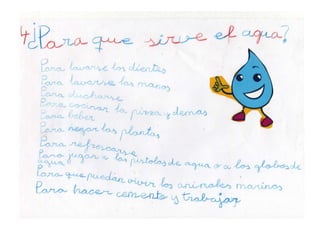 4 ¿Para que sirve el agua?
Para lavarse los dientes
Para lavarse las manos
Para ducharse
Para cocinar la pizza y demas
Para beber
Para regar las plantas
Para refrescarse
Para jugar a las pistolas de agua o a los globos de
agua
Para que puedan vivir los animales marinos
Para hacer cemento y trabajar